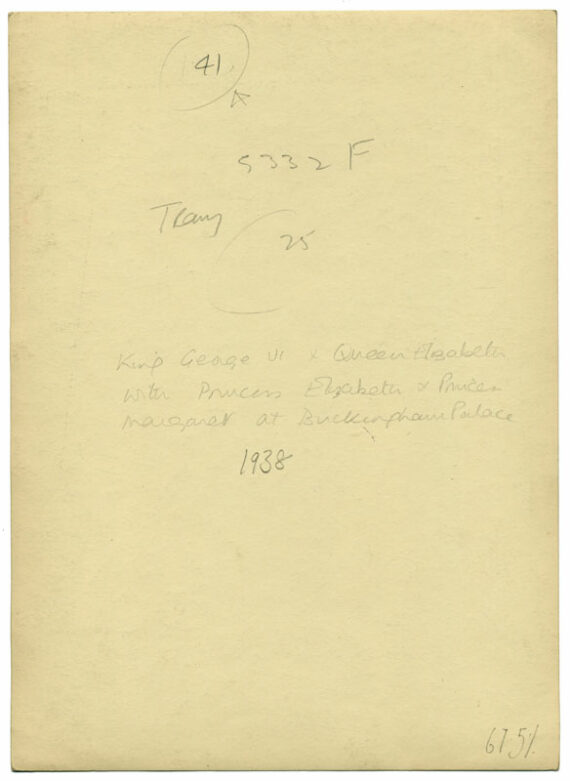 41
5332 F
25
King George VI & Queen Elizabeth
with Princess Elizabeth & Princess
Margaret at Buckingham Palace
1938
67.5%